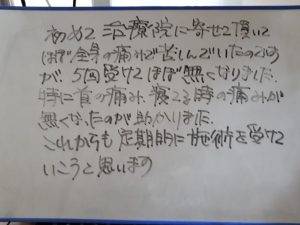 初めて治療院に寄せて頂いて
ほぼ全身の痛みで苦しんでいたのです
が、5回受けてほぼ無くなりました。
特に首の痛み、寝てる時の痛みが
無くなったのが助かりました。
これからも定期的に施術を受けて
いこうと思います